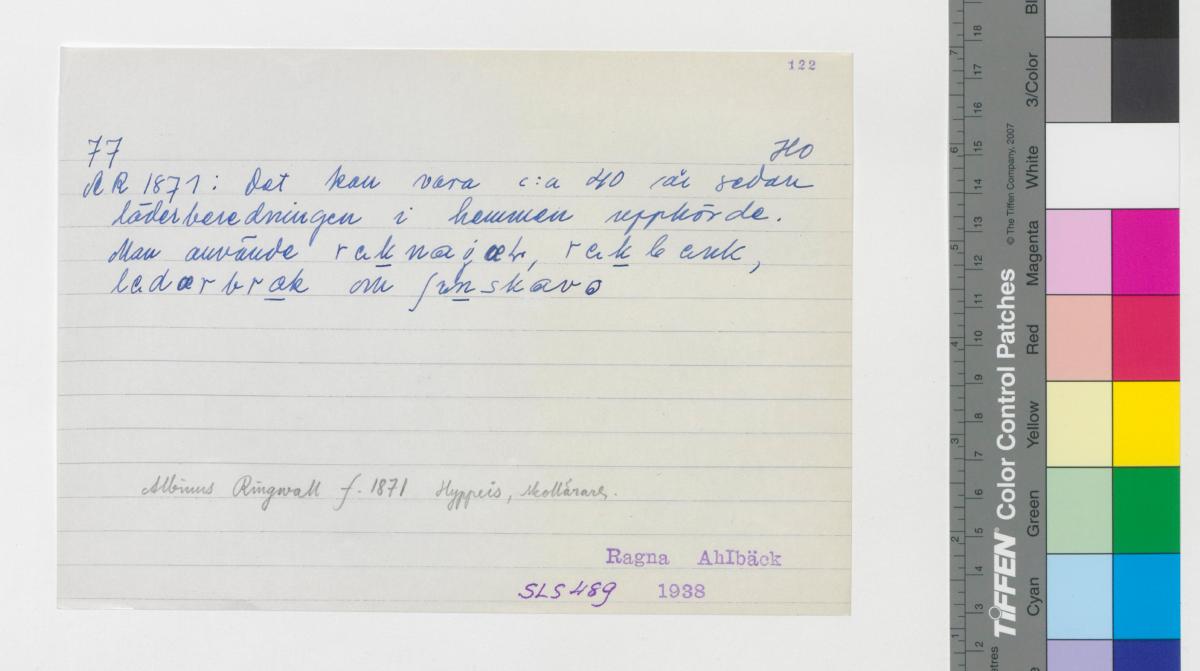 122
77 Ho
AR 1871: Det kan vara c:a 40 år sedan
läderberedningen i hemmen upphörde.
Man använde
om
Albinus Ringwall f. 1871 Hyppeis,
Ragna AhIbäck
SLS 489 1938
18
17
16
15
14
13
12
11
10
9
8
7
6
5
4
3
2
7
6
5
4
3
2
1
TIFFEN® Color Control Patches © The Tiffen Company, 2007
3/Color
White
Magenta
Red
Yellow
Green
Cyan